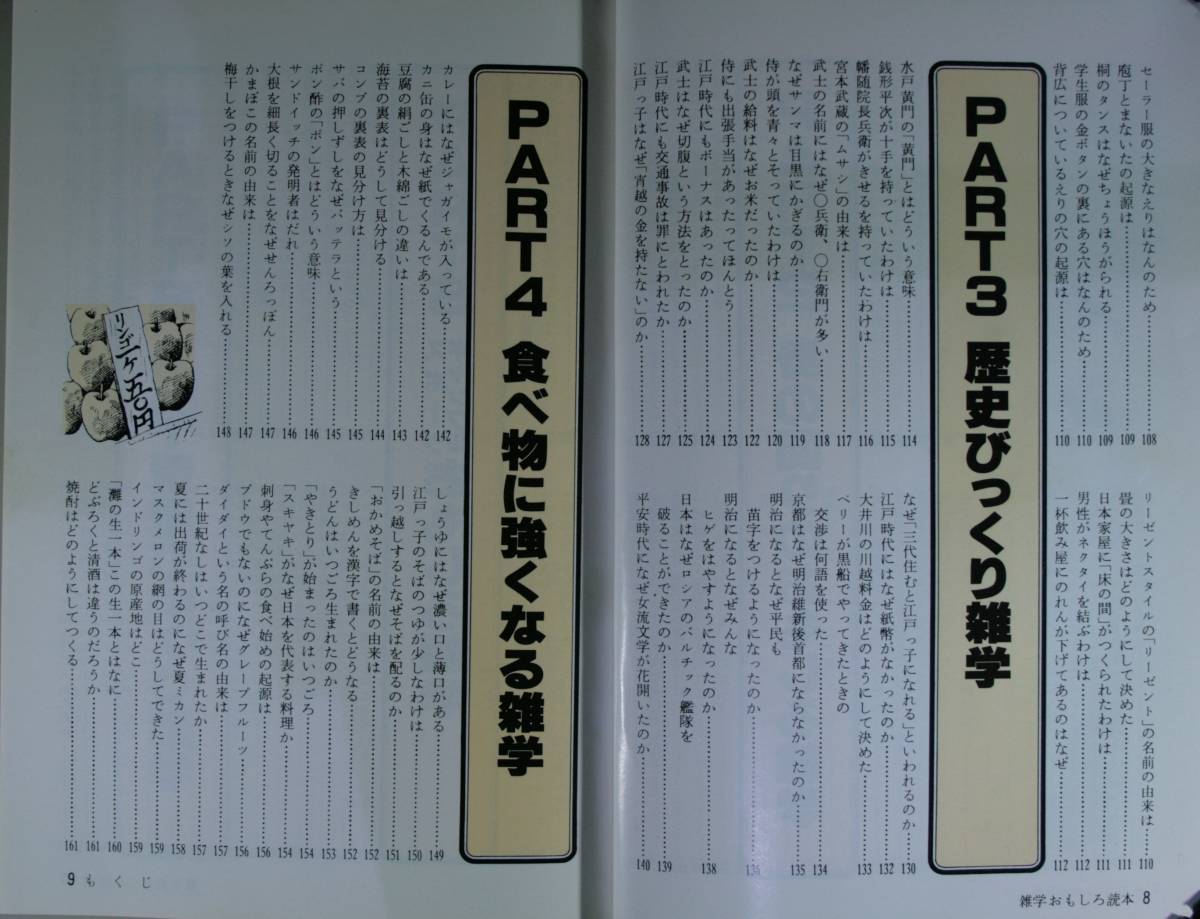 セーラー服の大きなえりはなんのため……108
庖丁とまないたの起源は……109
桐のタンスはなぜちょうほうがられる……109
学生服の金ボタンの裏にある穴はなんのため……110
背広についているえりの穴の起源は……110
リーゼントスタイルの「リーゼント」の名前の由来は……110
畳の大きさはどのようにして決めた……111
日本家屋に「床の間」がつくられたわけは……111
男性がネクタイを結ぶわけは……112
一杯飲み屋にのれんが下げてあるのはなぜ……112
PART3 歴史びっくり雑学
水戸黄門の「黄門」とはどういう意味……114
銭形平次が十手を持っていたわけは……115
幡随院長兵衛がきせるを持っていたわけは……116
宮本武蔵の「ムサシ」の由来は……117
武士の名前にはなぜ〇兵衛、〇右衛門が多い……118
なぜサンマは目黒にかぎるのか……119
侍が頭を青々とそっていたわけは……120
武士の給料はなぜお米だったのか……122
侍にも出張手当があったってほんとう……123
江戸時代にもボーナスはあったのか……124
武士はなぜ切腹という方法をとったのか……125
江戸時代にも交通事故は罪にとわれたか……127
江戸っ子はなぜ「宵越の金を持たない」のか……128
なぜ「三代住むと江戸っ子になれる」といわれるのか……130
江戸時代にはなぜ紙幣がなかったのか……132
大井川の川越料金はどのようにして決めた……133
ペリーが黒船でやってきたときの
交渉は何語を使った……134
京都はなぜ明治維新後首都にならなかったのか……135
明治になるとなぜ平民も
苗字をつけるようになったのか……136
明治になるとなぜみんな
ヒゲをはやすようになったのか……138
日本はなぜロシアのバルチック艦隊を
破ることができたのか……139
平安時代になぜ女流文学が花開いたのか……140
雑学おもしろ読本 8
PART4 食べ物に強くなる雑学
カレーにはなぜジャガイモが入っている……142
カニ缶の身はなぜ紙でくるんである……142
豆腐の絹ごしと木綿ごしの違いは……143
海苔の裏表はどうして見分ける……144
コンブの裏表の見分け方は……145
サバの押しずしをなぜバッテラという……145
ポン酢の「ポン」とはどういう意味……146
サンドイッチの発明者はだれ……146
大根を細長く切ることをなぜせんろっぽん……147
かまぼこの名前の由来は……147
梅干しをつけるときなぜシソの葉を入れる……148
リンゴ一ケ一五〇円
しょうゆにはなぜ濃い口と薄口がある……149
江戸っ子のそばのつゆが少しなわけは……150
引っ越しするとなぜそばを配るのか……151
「おかめそば」の名前の由来は……152
きしめんを漢字で書くとどうなる……152
うどんはいつごろ生まれたのか……153
「やきとり」が始まったのはいつごろ……154
「スキヤキ」がなぜ日本を代表する料理か……154
刺身やてんぷらの食べ始めの起源は……156
ブドウでもないのになぜグレープフルーツ……156
ダイダイという名の呼び名の由来は……157
二十世紀なしはいつどこで生まれたか……157
夏には出荷が終わるのになぜ夏ミカン……158
マスクメロンの網の目はどうしてできた……159
インドリンゴの原産地はどこ……159
「灘の生一本」この生一本とはなに……160
どぶろくと清酒は違うのだろうか……161
焼酎はどのようにしてつくる……161
9 もくじ